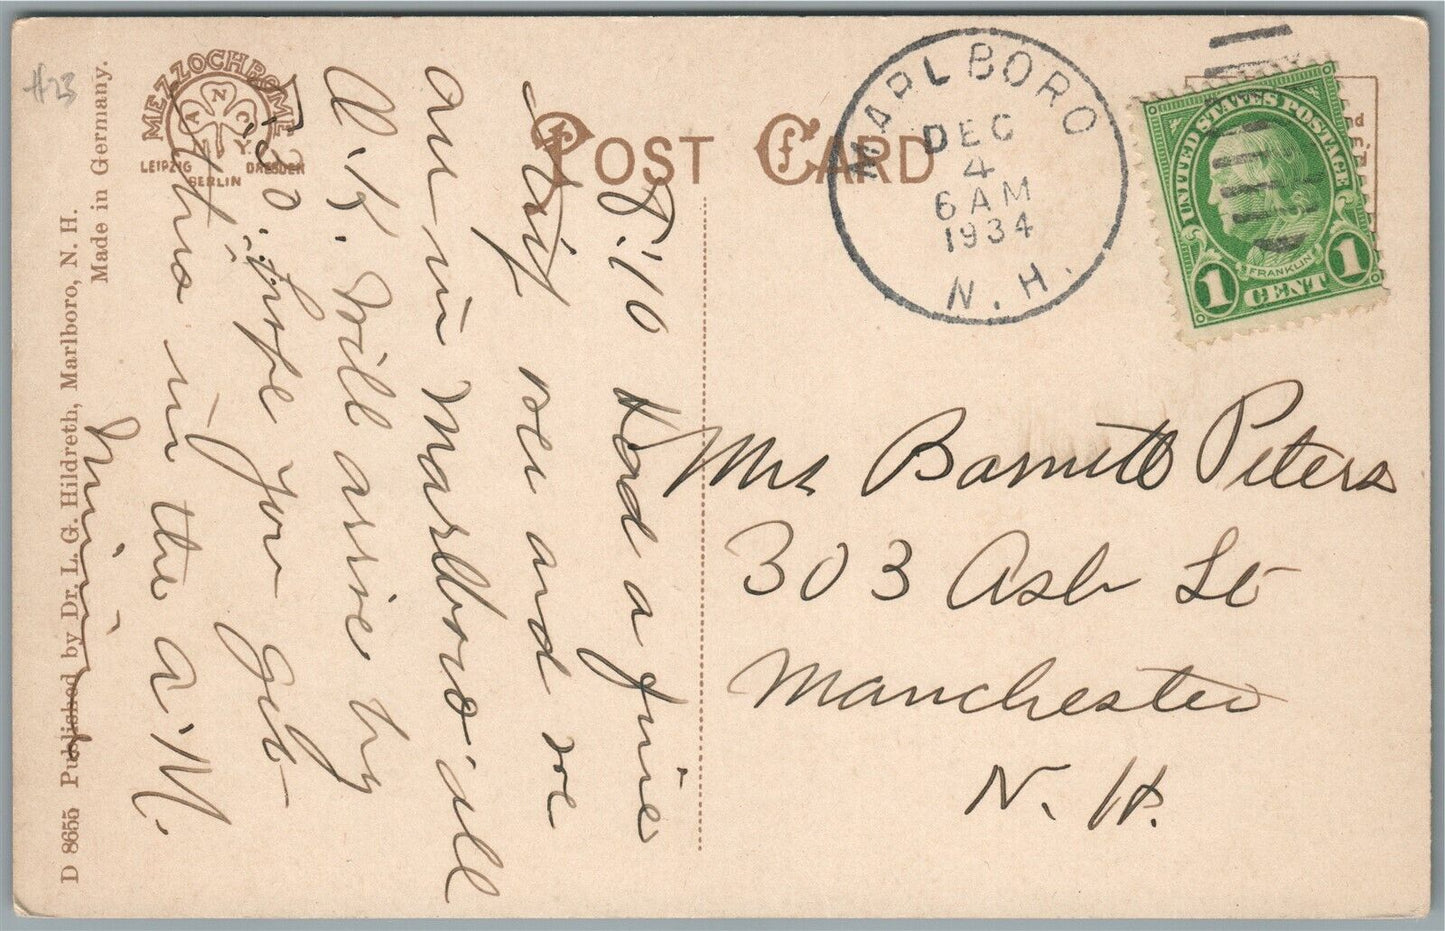 #23
MEZZOCHROME
A N C
N. Y.
LEIPZIG DRESDEN
BERLIN
POST CARD
MARLBORO
DEC
4
6 AM
1934
N. H.
UNITED STATES POSTAGE
FRANKLIN
1 CENT 1
8:10 Had a fine
visit, we and we
are in Marlboro all
O.K. Will arrive by
7:30. Hope you get
this in the A.M.
Mrs Barnett Peters
303 Ash St
Manchester
N. H.
D 8655 Published by Dr. L. G. Hildreth, Marlboro, N. H.
Made in Germany.